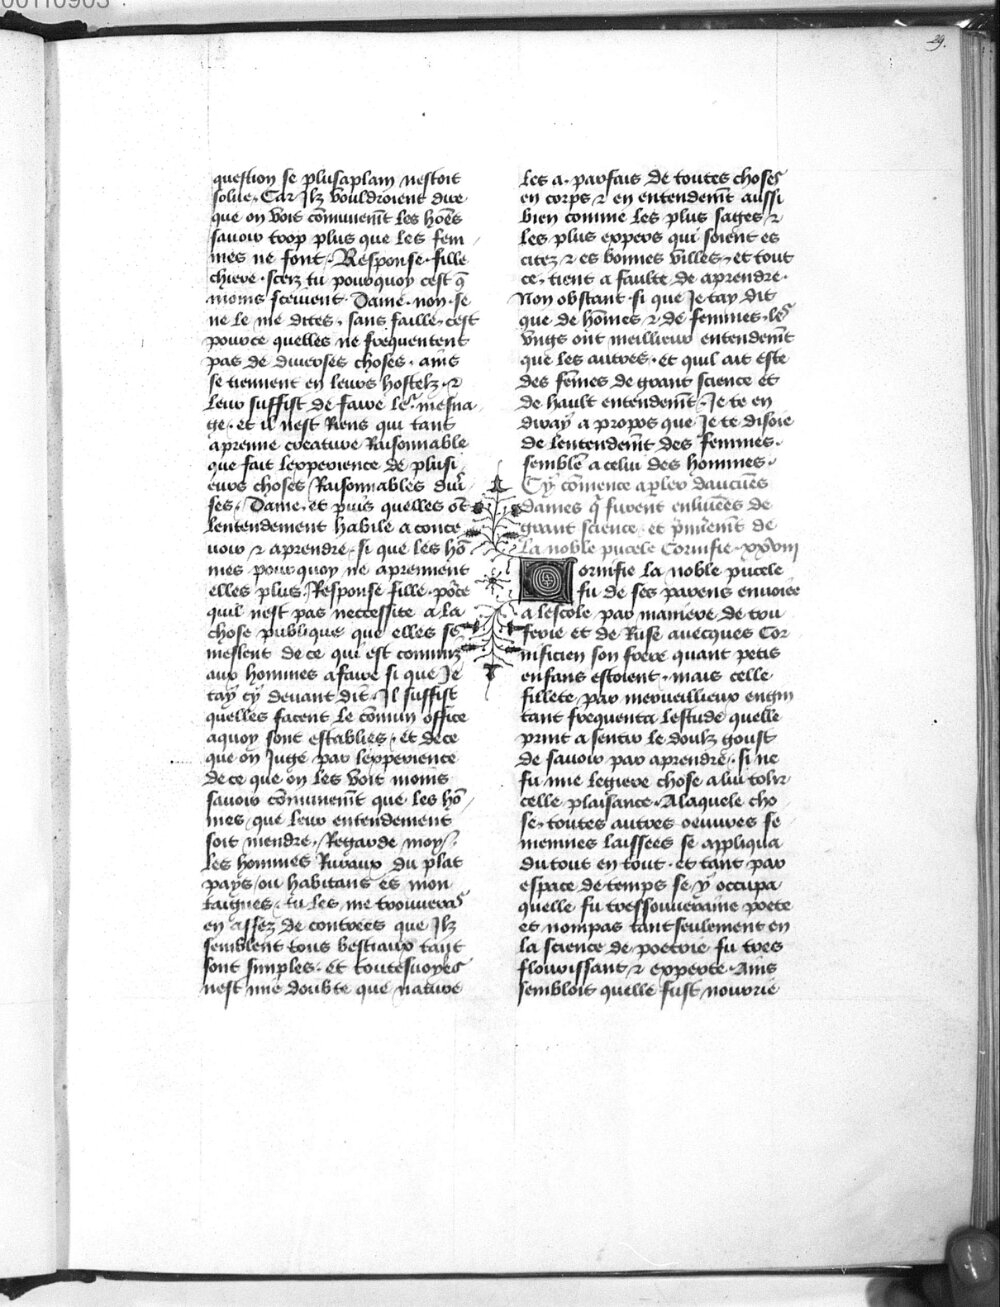 00110903
29.
question se plusaplain nestoit
solue. Car Ilz vouldroient dire
que on voit cōmunem̄t les hōēs
savoir trop plus que les fem
mes ne font. Response. fille
chiere. scez tu pourquoy cest q̄
moins scevent. Dame. non. se
ne le me dites. sans faille. cest
pource quelles ne frequentent
pas de diverses choses. ains
se tiennent en leurs hostelz. ⁊
leur suffist de faire le². mesna
ge. et il nest Riens qui tant
aprenne creature Raisonnable
que fait lexperience de plusi
eurs choses Raisonnables div̄
ses. Dame. et puis quelles ōt
lentendement habile a conce
voir ⁊ aprendre. si que les hō
mes pourquoy ne aprennent
elles plus. Response fille. po²ce
quil nest pas neccessite a la
chose publique que elles se
meslent de ce qui est commiz
aux hommes afaire si que Je
tay cy devant dit. Il suffist
quelles facent le cōmun office
aquoy sont establies. et dece
que on Juge par lexperience
dece que on les voit moins
savoir cōmunem̄t que les hō
mes, que leur entendement
soit mendre. Regarde moy
les hommes Ruraux du plat
pays ou habitans es mon
taignes. tu les me trouveras
en assez de contrees que Ilz
semblent tous bestiaux tant
sont simples. et toutesvoyes
nest mie doubte que nature
les a. parfais de toutes choses
en corps ⁊ en entendem̄t aussi
bien comme les plus sages ⁊
les plus expers qui soient es
citez ⁊ es bonnes villes. et tout
ce. tient a faulte de aprendre.
Non obstant si que Je tay dit
que de hōmes ⁊ de femmes. les
vngs ont meilleur entendem̄t
que les autres. et quil ait este
des fēmes de grant science et
de hault entendem̄t. Je te en
diray a propos que Je te disoie
de lentendem̄t des femmes.
semblē a celui des hommes.
Cy cōmence apler daucūēs
dames q̄ furent enluīēēs de
grant science. et p̄mierem̄t de
la noble pucele Cornifie. xxviij
Cornifie la noble pucele
fu de ses parens envoiee
a lescole par maniere de tru
ferie et de Ruse avecques Cor
nificien son frere quant petis
enfans estoient. mais celle
fillete par merveilleux engin
tant frequenta lestude quelle
print a sentir le doulz goust
de savoir par aprendre. si ne
fu mie legiere chose a lui tolir
celle plaisance. Alaquele cho
se. toutes autres oeuvres fe
menines laissees se appliqua
dutout en tout. et tant par
espace de temps se y occupa
quelle fu tressouveraine poete
et nompas tant seulement en
la science de poetrie fu tres
flourissant ⁊ experte. Ains
sembloit quelle fust nourrie